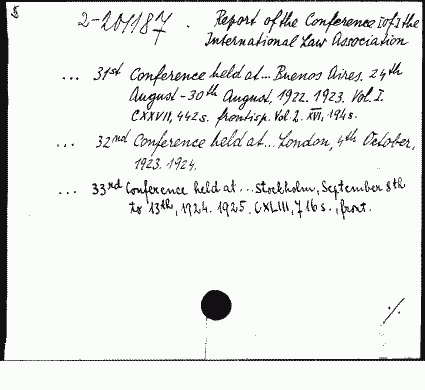 2-201187. Report of the Conference [of] the
International Law Association
... 31st Conference held at... Buenos Aires. 24th
August - 30th August, 1922. 1923. Vol. I.
CXXVII, 442s. frontisp. Vol 2. XVI, 194s.
... 32nd Conference held at... London, 4th October,
1923. 1924.
... 33rd Conference held at... Stockholm, September 8th
to 13th, 1924. 1925. CXLIII, 716s., front.
./.